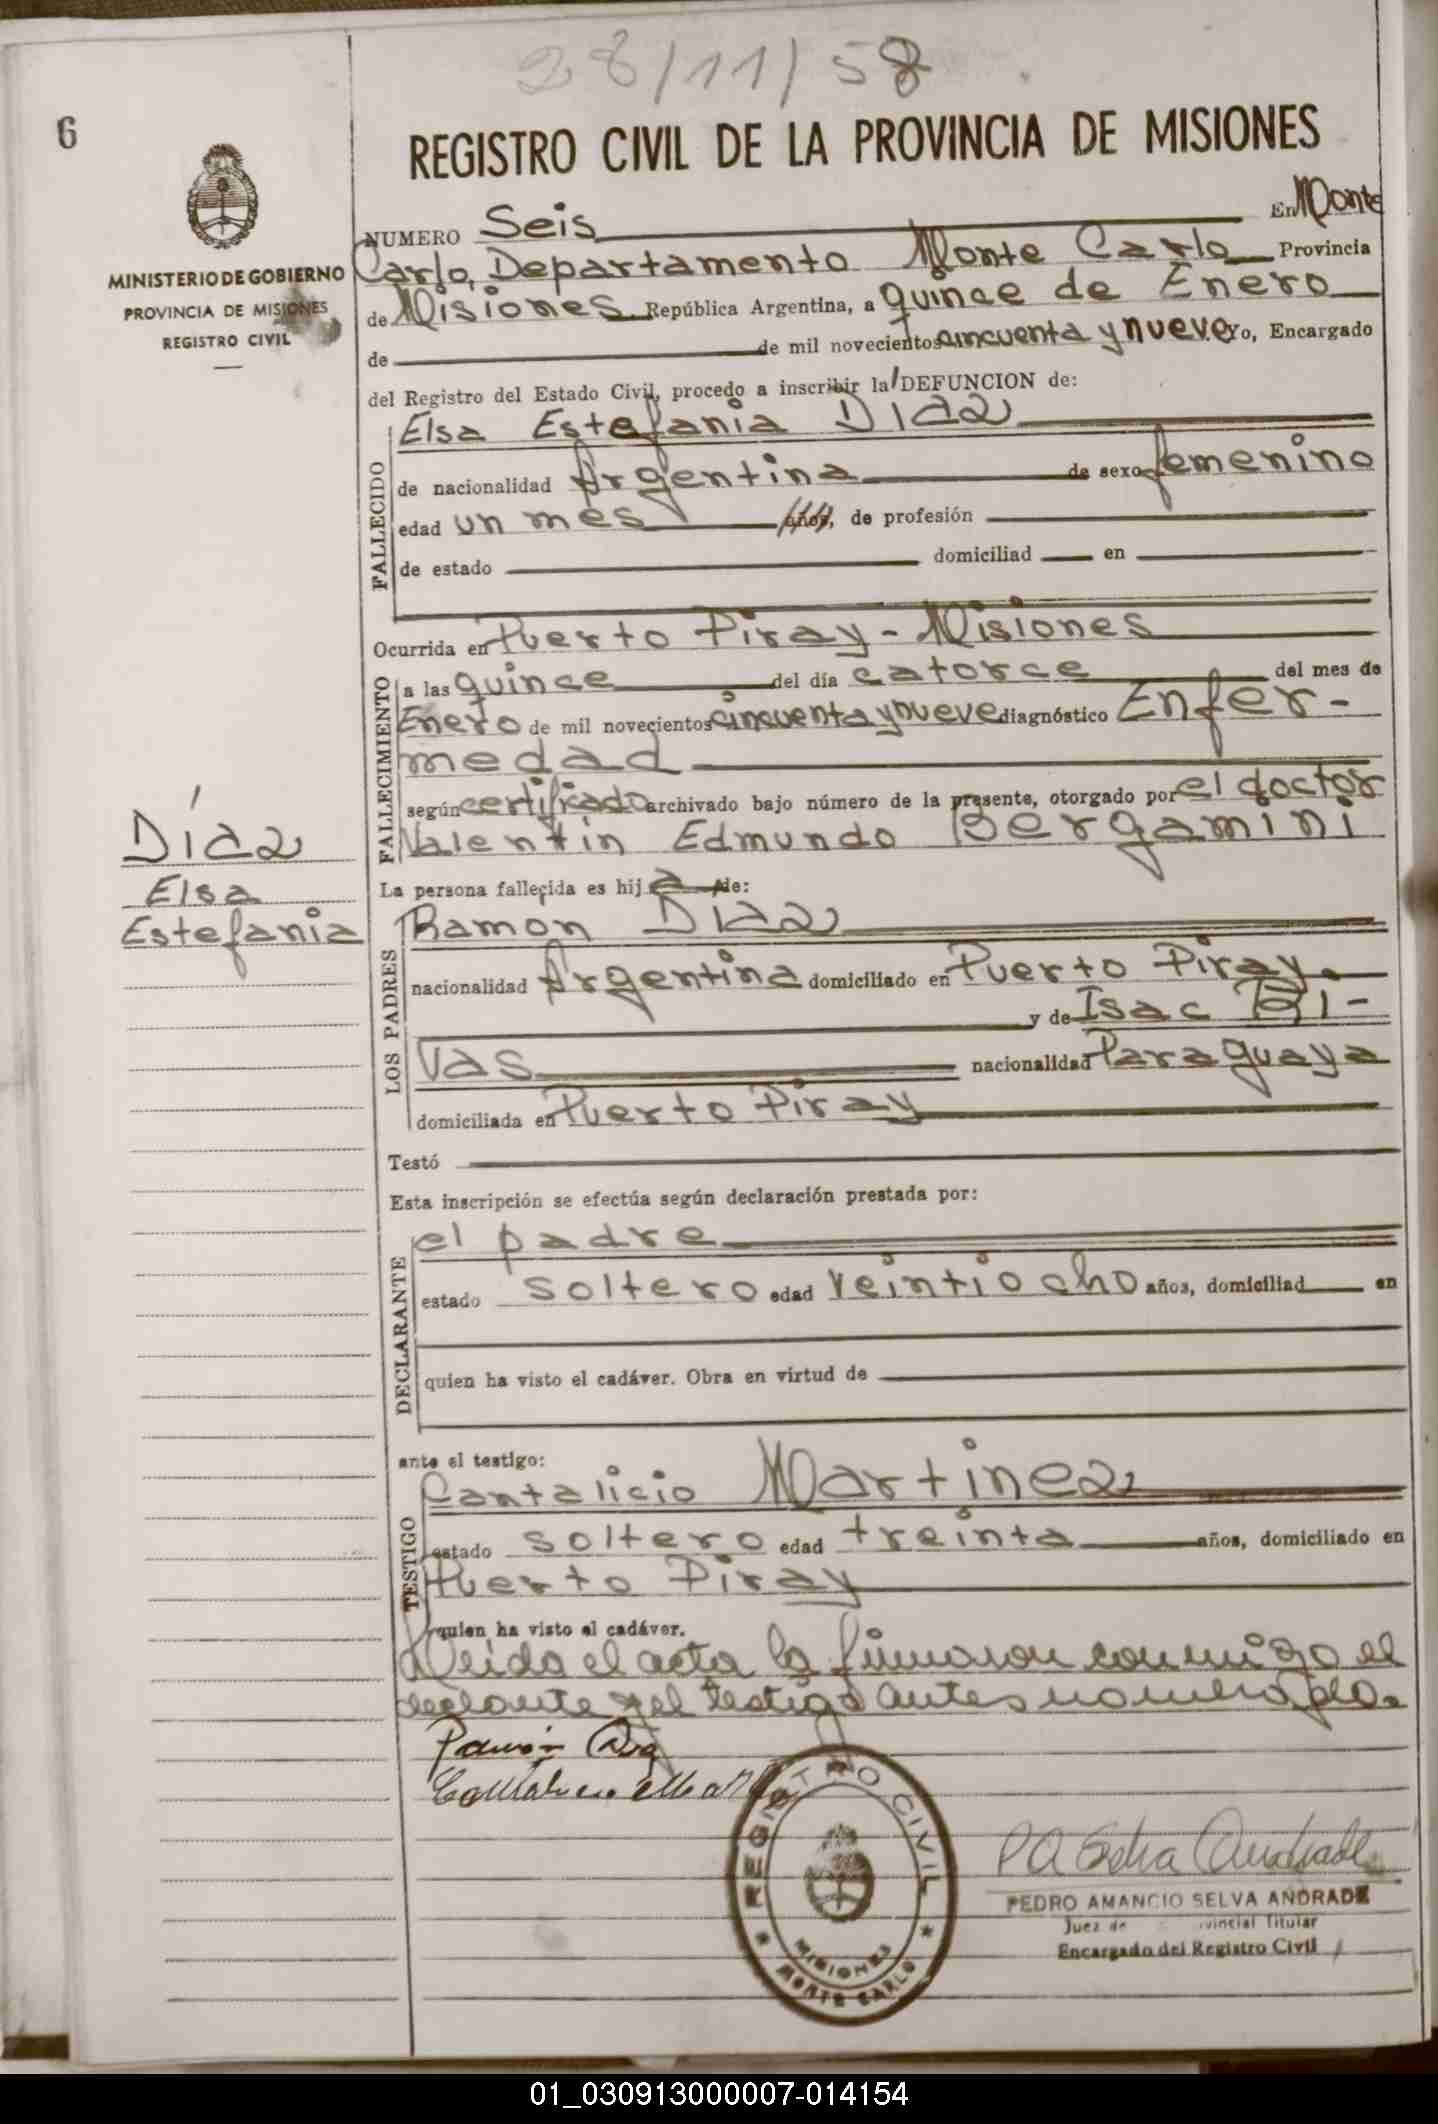 28/11/58
6
REGISTRO CIVIL DE LA PROVINCIA DE MISIONES
MINISTERIO DE GOBIERNO
PROVINCIA DE MISIONES
REGISTRO CIVIL
NUMERO Seis En Monte
Carlo, Departamento Monte Carlo Provincia
de Misiones República Argentina, a quince de Enero
de de mil novecientos cincuenta y nueve Yo, Encargado
del Registro del Estado Civil, procedo a inscribir la DEFUNCION de:
FALLECIDO
Elsa Estefania Diaz
de nacionalidad Argentina de sexo femenino
edad un mes años, de profesión
de estado domiciliad en
Ocurrida en Puerto Piray - Misiones
FALLECIMIENTO
a las quince del día catorce del mes de
Enero de mil novecientos cincuenta y nueve diagnóstico Enfer-
medad
según certificado archivado bajo número de la presente, otorgado por el doctor
Valentin Edmundo Bergamini
Díaz
Elsa
Estefania
La persona fallecida es hija de:
LOS PADRES
Ramon Diaz
nacionalidad Argentina domiciliado en Puerto Piray.
y de Isac Ri-
vas nacionalidad Paraguaya
domiciliada en Puerto Piray
Testó
Esta inscripción se efectúa según declaración prestada por:
DECLARANTE
el padre
estado soltero edad veintiocho años, domiciliad en
quien ha visto el cadáver. Obra en virtud de
ante el testigo:
TESTIGO
Cantalicio Martinez
estado soltero edad treinta años, domiciliado en
Puerto Piray
quien ha visto el cadáver.
Leida el acta la firmaron conmigo el
declarante y el testigo antes nombrado.
Ramón Diaz
REGISTRO CIVIL
MISIONES
MONTE CARLO
PA Selva Andrade
PEDRO AMANCIO SELVA ANDRADE
Juez de Titular
Encargado del Registro Civil
01_030913000007-014154